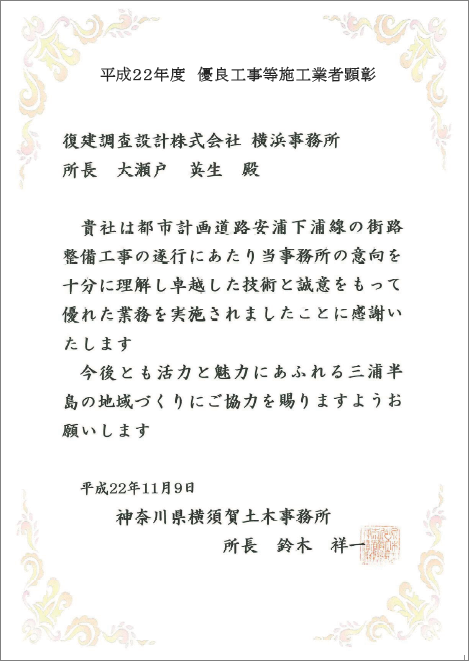 平成22年度　優良工事等施工業者顕彰
復建調査設計株式会社 横浜事務所
所長　大瀬戸　英生　殿
貴社は都市計画道路安浦下浦線の街路
整備工事の遂行にあたり当事務所の意向を
十分に理解し卓越した技術と誠意をもって
優れた業務を実施されましたことに感謝い
たします
今後とも活力と魅力にあふれる三浦半
島の地域づくりにご協力を賜りますようお
願いします
平成22年11月9日
神奈川県横須賀土木事務所
所長　鈴木　祥一